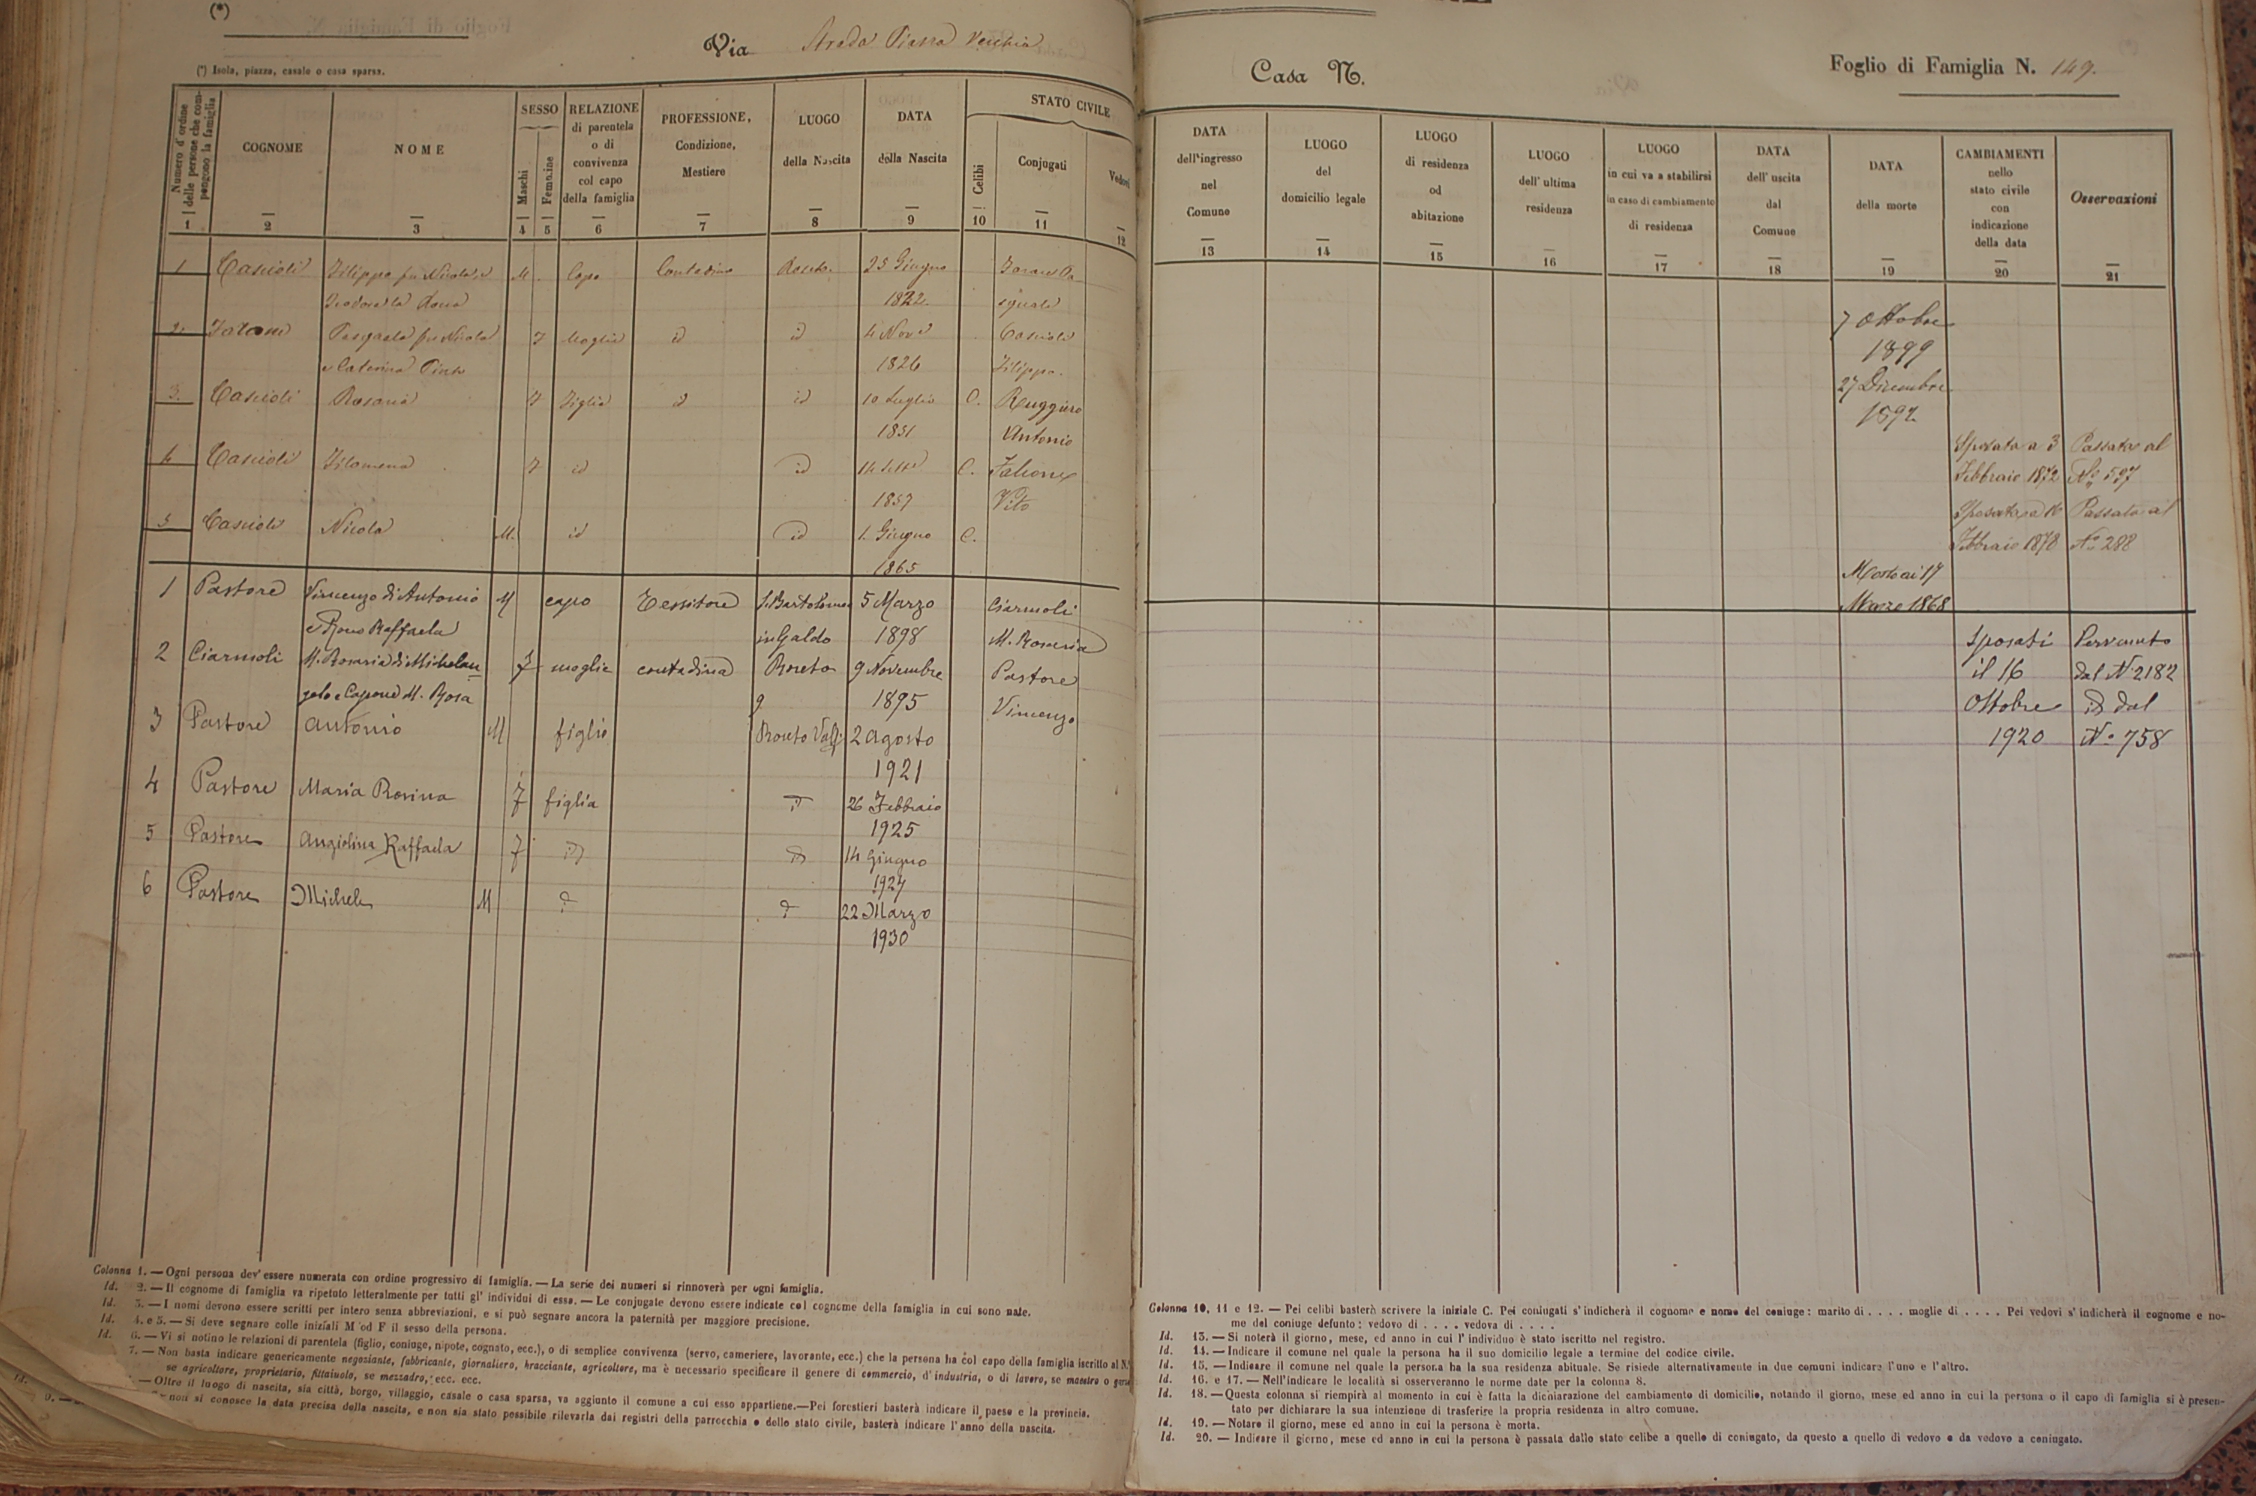 (*)
Via Strada Piazza Vecchia
(*) Isola, piazza, casale o casa sparsa.
Casa N.
Foglio di Famiglia N. 149.
Numero d'ordine delle persone che compongono la famiglia
1
COGNOME
2
NOME
3
SESSO
Maschi
4
Femmine
5
RELAZIONE
di parentela
o di
convivenza
col capo
della famiglia
6
PROFESSIONE,
Condizione,
Mestiere
7
LUOGO
della Nascita
8
DATA
della Nascita
9
STATO CIVILE
Celibi
10
Conjugati
11
Vedovi
12
DATA
dell'ingresso
nel
Comune
13
LUOGO
del
domicilio legale
14
LUOGO
di residenza
od
abitazione
15
LUOGO
dell'ultima
residenza
16
LUOGO
in cui va a stabilirsi
in caso di cambiamento
di residenza
17
DATA
dell'uscita
dal
Comune
18
DATA
della morte
19
CAMBIAMENTI
nello
stato civile
con
indicazione
della data
20
Osservazioni
21
1 Cascioli Filippo fu Nicola, e M. Capo Contadino Roseto. 25 Giugno
1822.
7 Ottobre
1899
2. Pasquala fu Nicola F Moglie id id 4 Nove Cascioli
e Caterina 1826 Filippo.
27 Dicembre
1892
3. Cascioli Rosaria F Figlia id id 10 Luglio C. Ruggiero
1851 Antonio
Sposata a 3 Passata al
Febbraio 1872 No 597
4 Cascioli Filomena F id id 14 C. Falcone
1857 Vito
Sposata a 16 Passata al
Febbraio 1878 No 288
5 Cascioli Nicola M. id id 1. Giugno C.
1865
Morto ai 17
Marzo 1868
1 Pastore Vincenzo di Antonio M capo Tessitore S. Bartolomeo 5 Marzo Ciarmoli
e Raffaela in Galdo 1898 M. Rosaria
Sposati Pervenuto
il 16 dal N. 2182
2 Ciarmoli M. Rosaria di Michelan F moglie contadina Roseto 9 Novembre Pastore
gelo e Capone M. Rosa 1895 Vincenzo
Ottobre id dal
1920 No 758
3 Pastore Antonio M figlio Roseto Valf. 2 Agosto
1921
4 Pastore Maria Rosina F figlia id 26 Febbraio
1925
5 Pastore Angiolina Raffaela F id id 14 Giugno
1927
6 Pastore Michele M id id 22 Marzo
1930
Colonna 1. — Ogni persona dev'essere numerata con ordine progressivo di famiglia. — La serie dei numeri si rinnoverà per ogni famiglia.
Id. 2. — Il cognome di famiglia va ripetuto letteralmente per tutti gl'individui di essa. — Le conjugate devono essere indicate col cognome della famiglia in cui sono nate.
Id. 3. — I nomi devono essere scritti per intero senza abbreviazioni, e si può segnare ancora la paternità per maggiore precisione.
Id. 4. e 5. — Si deve segnare colle iniziali M od F il sesso della persona.
Id. 6. — Vi si notino le relazioni di parentela (figlio, coniuge, nipote, cognato, ecc.), o di semplice convivenza (servo, cameriere, lavorante, ecc.) che la persona ha col capo della famiglia iscritto al N.
7. — Non basta indicare genericamente negoziante, fabbricante, giornaliero, bracciante, agricoltore, ma è necessario specificare il genere di commercio, d'industria, o di lavoro, se maestro o
se agricoltore, proprietario, fittaiuolo, se mezzadro, ecc. ecc.
— Oltre il luogo di nascita, sia città, borgo, villaggio, casale o casa sparsa, va aggiunto il comune a cui esso appartiene.—Pei forestieri basterà indicare il paese e la provincia.
non si conosce la data precisa della nascita, e non sia stato possibile rilevarla dai registri della parrocchia o dello stato civile, basterà indicare l'anno della nascita.
Colonna 10, 11 e 12. — Pei celibi basterà scrivere la iniziale C. Pei coniugati s'indicherà il cognome e nome del coniuge: marito di . . . . moglie di . . . . Pei vedovi s'indicherà il cognome e no-
me del coniuge defunto: vedovo di . . . . vedova di . . . .
Id. 13. — Si noterà il giorno, mese, ed anno in cui l'individuo è stato iscritto nel registro.
Id. 14. — Indicare il comune nel quale la persona ha il suo domicilio legale a termine del codice civile.
Id. 15. — Indicare il comune nel quale la persona ha la sua residenza abituale. Se risiede alternativamente in due comuni indicare l'uno e l'altro.
Id. 16. e 17. — Nell'indicare le località si osserveranno le norme date per la colonna 8.
Id. 18. — Questa colonna si riempirà al momento in cui è fatta la dichiarazione del cambiamento di domicilio, notando il giorno, mese ed anno in cui la persona o il capo di famiglia si è presen-
tato per dichiarare la sua intenzione di trasferire la propria residenza in altro comune.
Id. 19. — Notare il giorno, mese ed anno in cui la persona è morta.
Id. 20. — Indicare il giorno, mese ed anno in cui la persona è passata dallo stato celibe a quello di coniugato, da questo a quello di vedovo e da vedovo a coniugato.